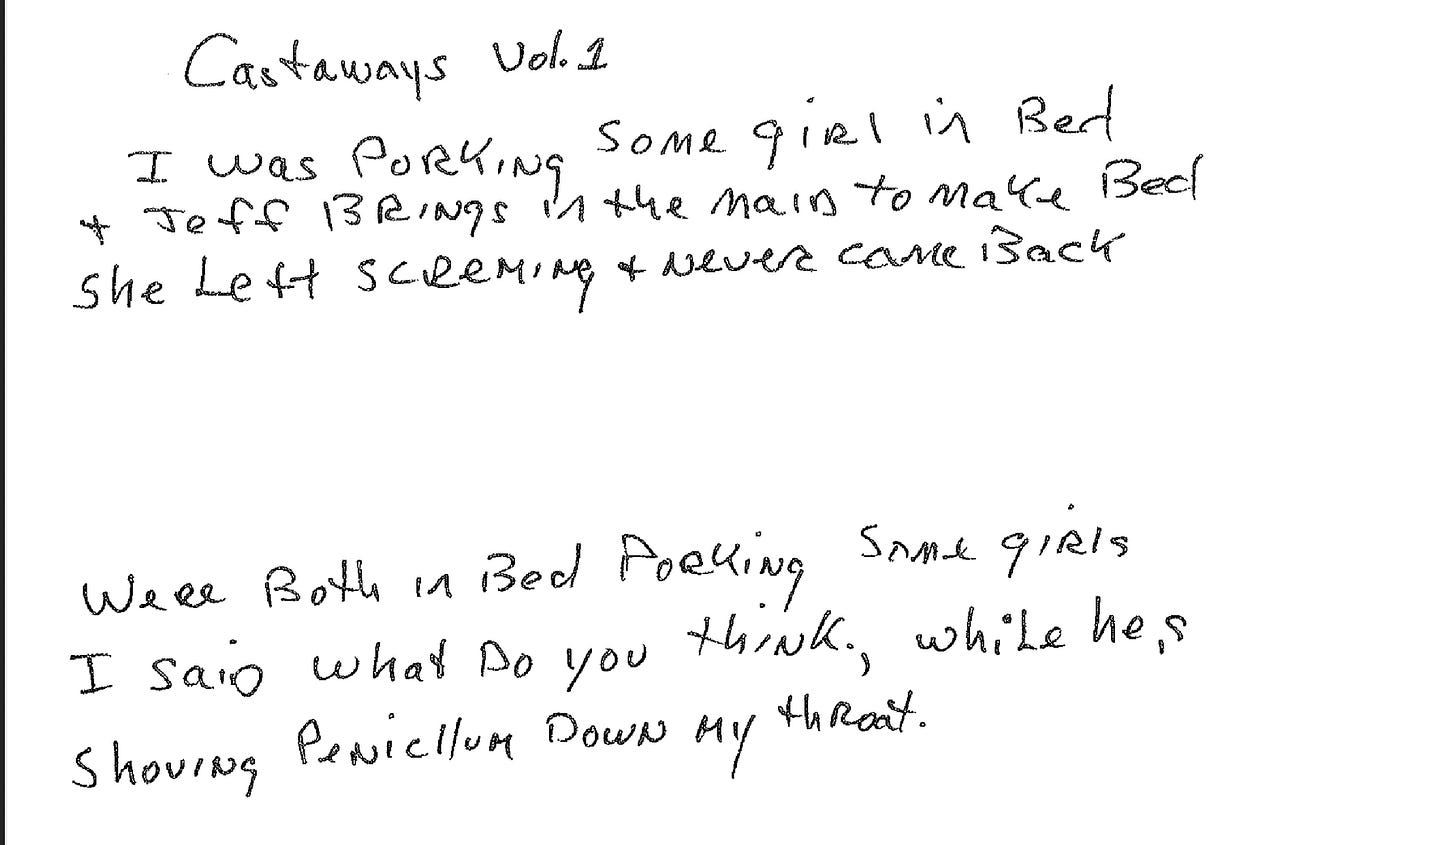 Castaways Vol. 1
I was PORKING Some girl in Bed
+ Jeff BRINgs in the maid to make Bed
She Left SCREMING + Never came Back
Were Both in Bed PORKING Some giRls
I Said what Do you think., while he,s
Shoving Penicllum Down My thRoat.